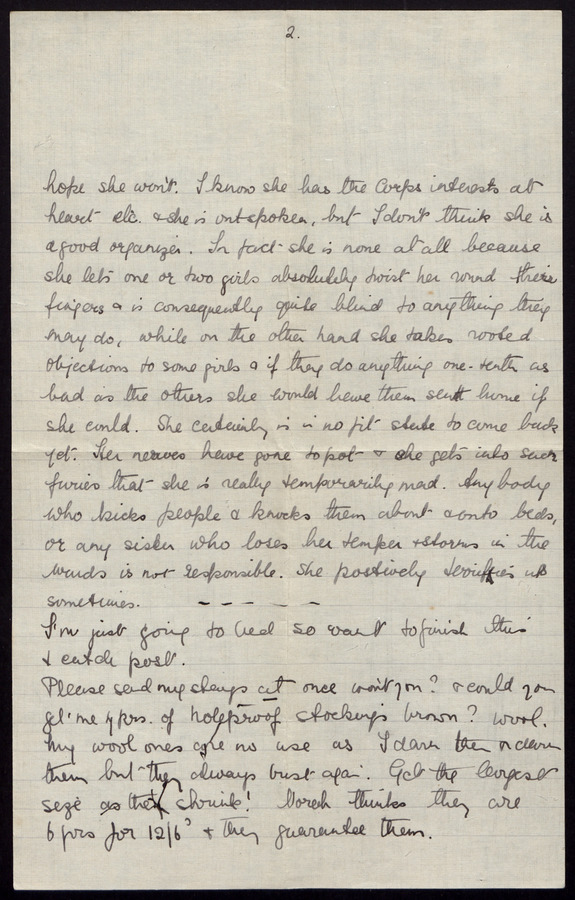 2.
hope she won't. I know she has the Corps interests at
heart etc. & she is outspoken, but I don't think she is
a good organizer. In fact she is none at all because
she lets one or two girls absolutely twist her round their
fingers & is consequently quite blind to anything they
may do, while on the other hand she takes rooted
objections to some girls & if they do anything one-tenth as
bad as the others she would have them sent home if
she could. She certainly is in no fit state to come back
yet. Her nerves have gone to pot & she gets into such
furies that she is really temporarily mad. Any body
who kicks people & knocks them about & onto beds,
or any sister who loses her temper & storms in the
wards is not responsible. She positively terrifies us
sometimes. - - - - -
I'm just going to bed so want to finish this
& catch post.
Please send my at once won't you? & could you
get me prs. of holeproof stockings brown? wool.
My wool ones are no use as I darn & darn
them but they always bust again. Get the largest
size as they shrink! thinks they are
6 prs for 12/6 & they guarantee them.